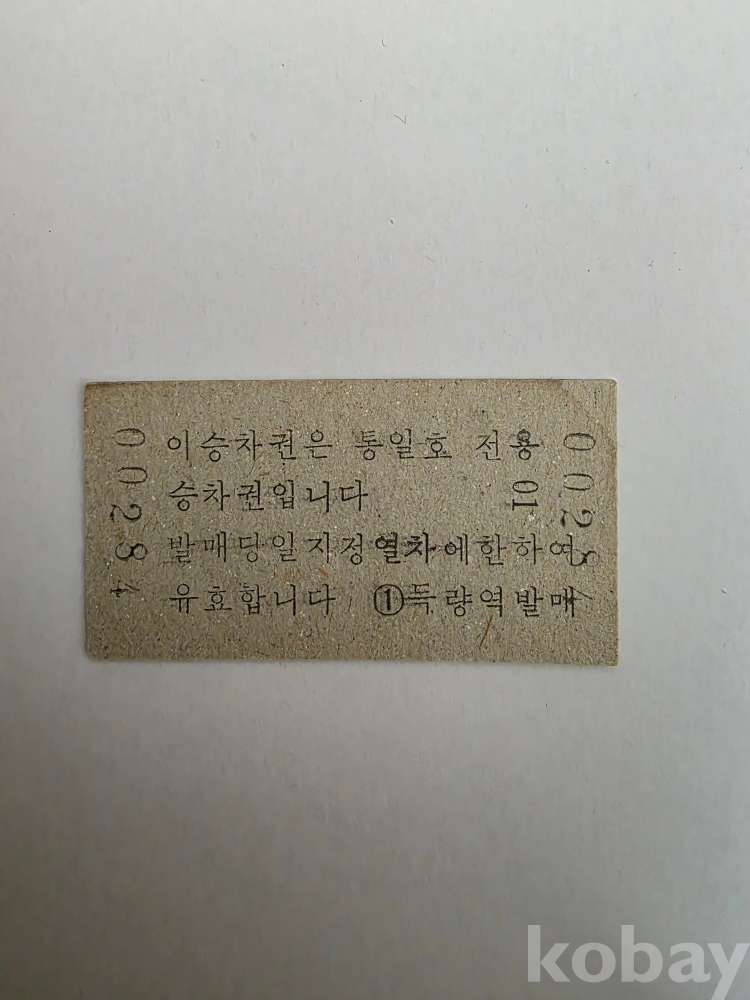 이승차권은 통일호 전용
승차권입니다
발매당일지정열차에한하여
유효합니다 ①득량역발매
00284
01
00284
kobay